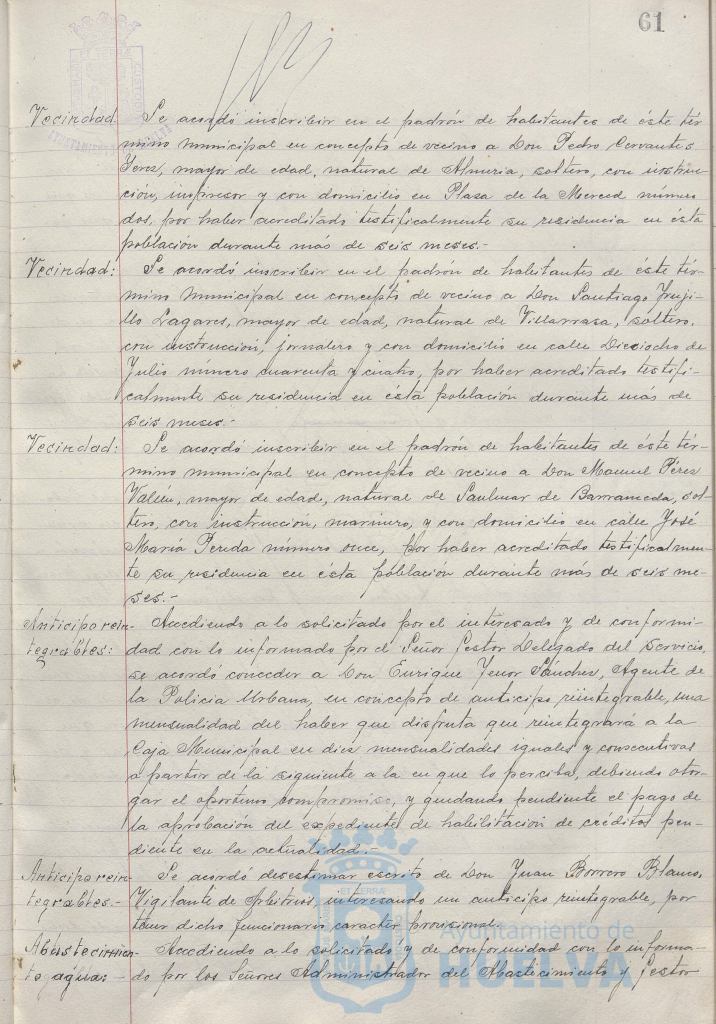 61
Vecindad. Se acordó inscribir en el padrón de habitantes de éste tér-
mino municipal en concepto de vecino a Don Pedro Cervantes
Yerez, mayor de edad, natural de Almeria, soltero, con instruc-
ción, impresor y con domicilio en Plaza de la Merced número
dos, por haber acreditado testificalmente su residencia en ésta
población durante más de seis meses.-
Vecindad: Se acordó inscribir en el padrón de habitantes de éste tér-
mino municipal en concepto de vecino a Don Santiago Truji-
llo Lagares, mayor de edad, natural de Villarrasa, soltero,
con instrucción, jornalero y con domicilio en calle Dieciocho de
Julio número cuarenta y cuatro, por haber acreditado testifi-
calmente su residencia en ésta población durante más de
seis meses.-
Vecindad: Se acordó inscribir en el padrón de habitantes de éste tér-
mino municipal en concepto de vecino a Don Manuel Pérez
mayor de edad, natural de Sanlucar de Barrameda, sol-
tero, con instrucción, marinero, y con domicilio en calle José
María Pereda número once, por haber acreditado testificalmen-
te su residencia en ésta población durante más de seis me-
ses.-
Anticipo rein- Accediendo a lo solicitado por el interesado y de conformi-
tegrables: dad con lo informado por el Señor Gestor Delegado del Servicio,
se acordó conceder a Don Enrique Sánchez, Agente de
la Policia Urbana, en concepto de anticipo reintegrable, una
mensualidad del haber que disfruta que reintegrará a la
Caja Municipal en diez mensualidades iguales y consecutivas
a partir de la siguiente a la en que lo perciba, debiendo otor-
gar el oportuno compromiso, y quedando pendiente el pago de
la aprobación del expediente de habilitación de créditos pen-
diente en la actualidad.-
Anticipo rein- Se acordó desestimar escrito de Don Juan Borrero Blanco,
tegrables.- Vigilante de Arbitrios, interesando un anticipo reintegrable, por
tener dicho funcionario caracter provisional.
Abastecimien- Accediendo a lo solicitado y de conformidad con lo informa-
to agua: - do por los Señores Administrador del Abastecimiento y Gestor
Ayuntamiento de
HUELVA